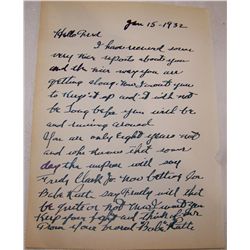 Jan 15-1932
Hello Fred
I have received some
very nice reports about you
and the nice way you are
getting along. Now I want you
to keep it up and it will not
be long before you will be
and running around
You are only Eight years old
and who knows that some
day the umpire will say
Fredy Clark Jr. now batting for
Babe Ruth. say Fredy will that
be quite or not. must want you
Keep your and think of me
From your Friend Babe Ruth